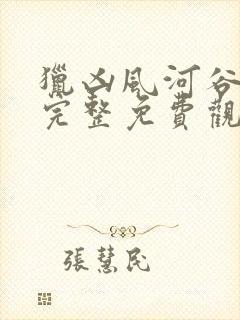 獵凶風河谷
完整免費觀
張慧民